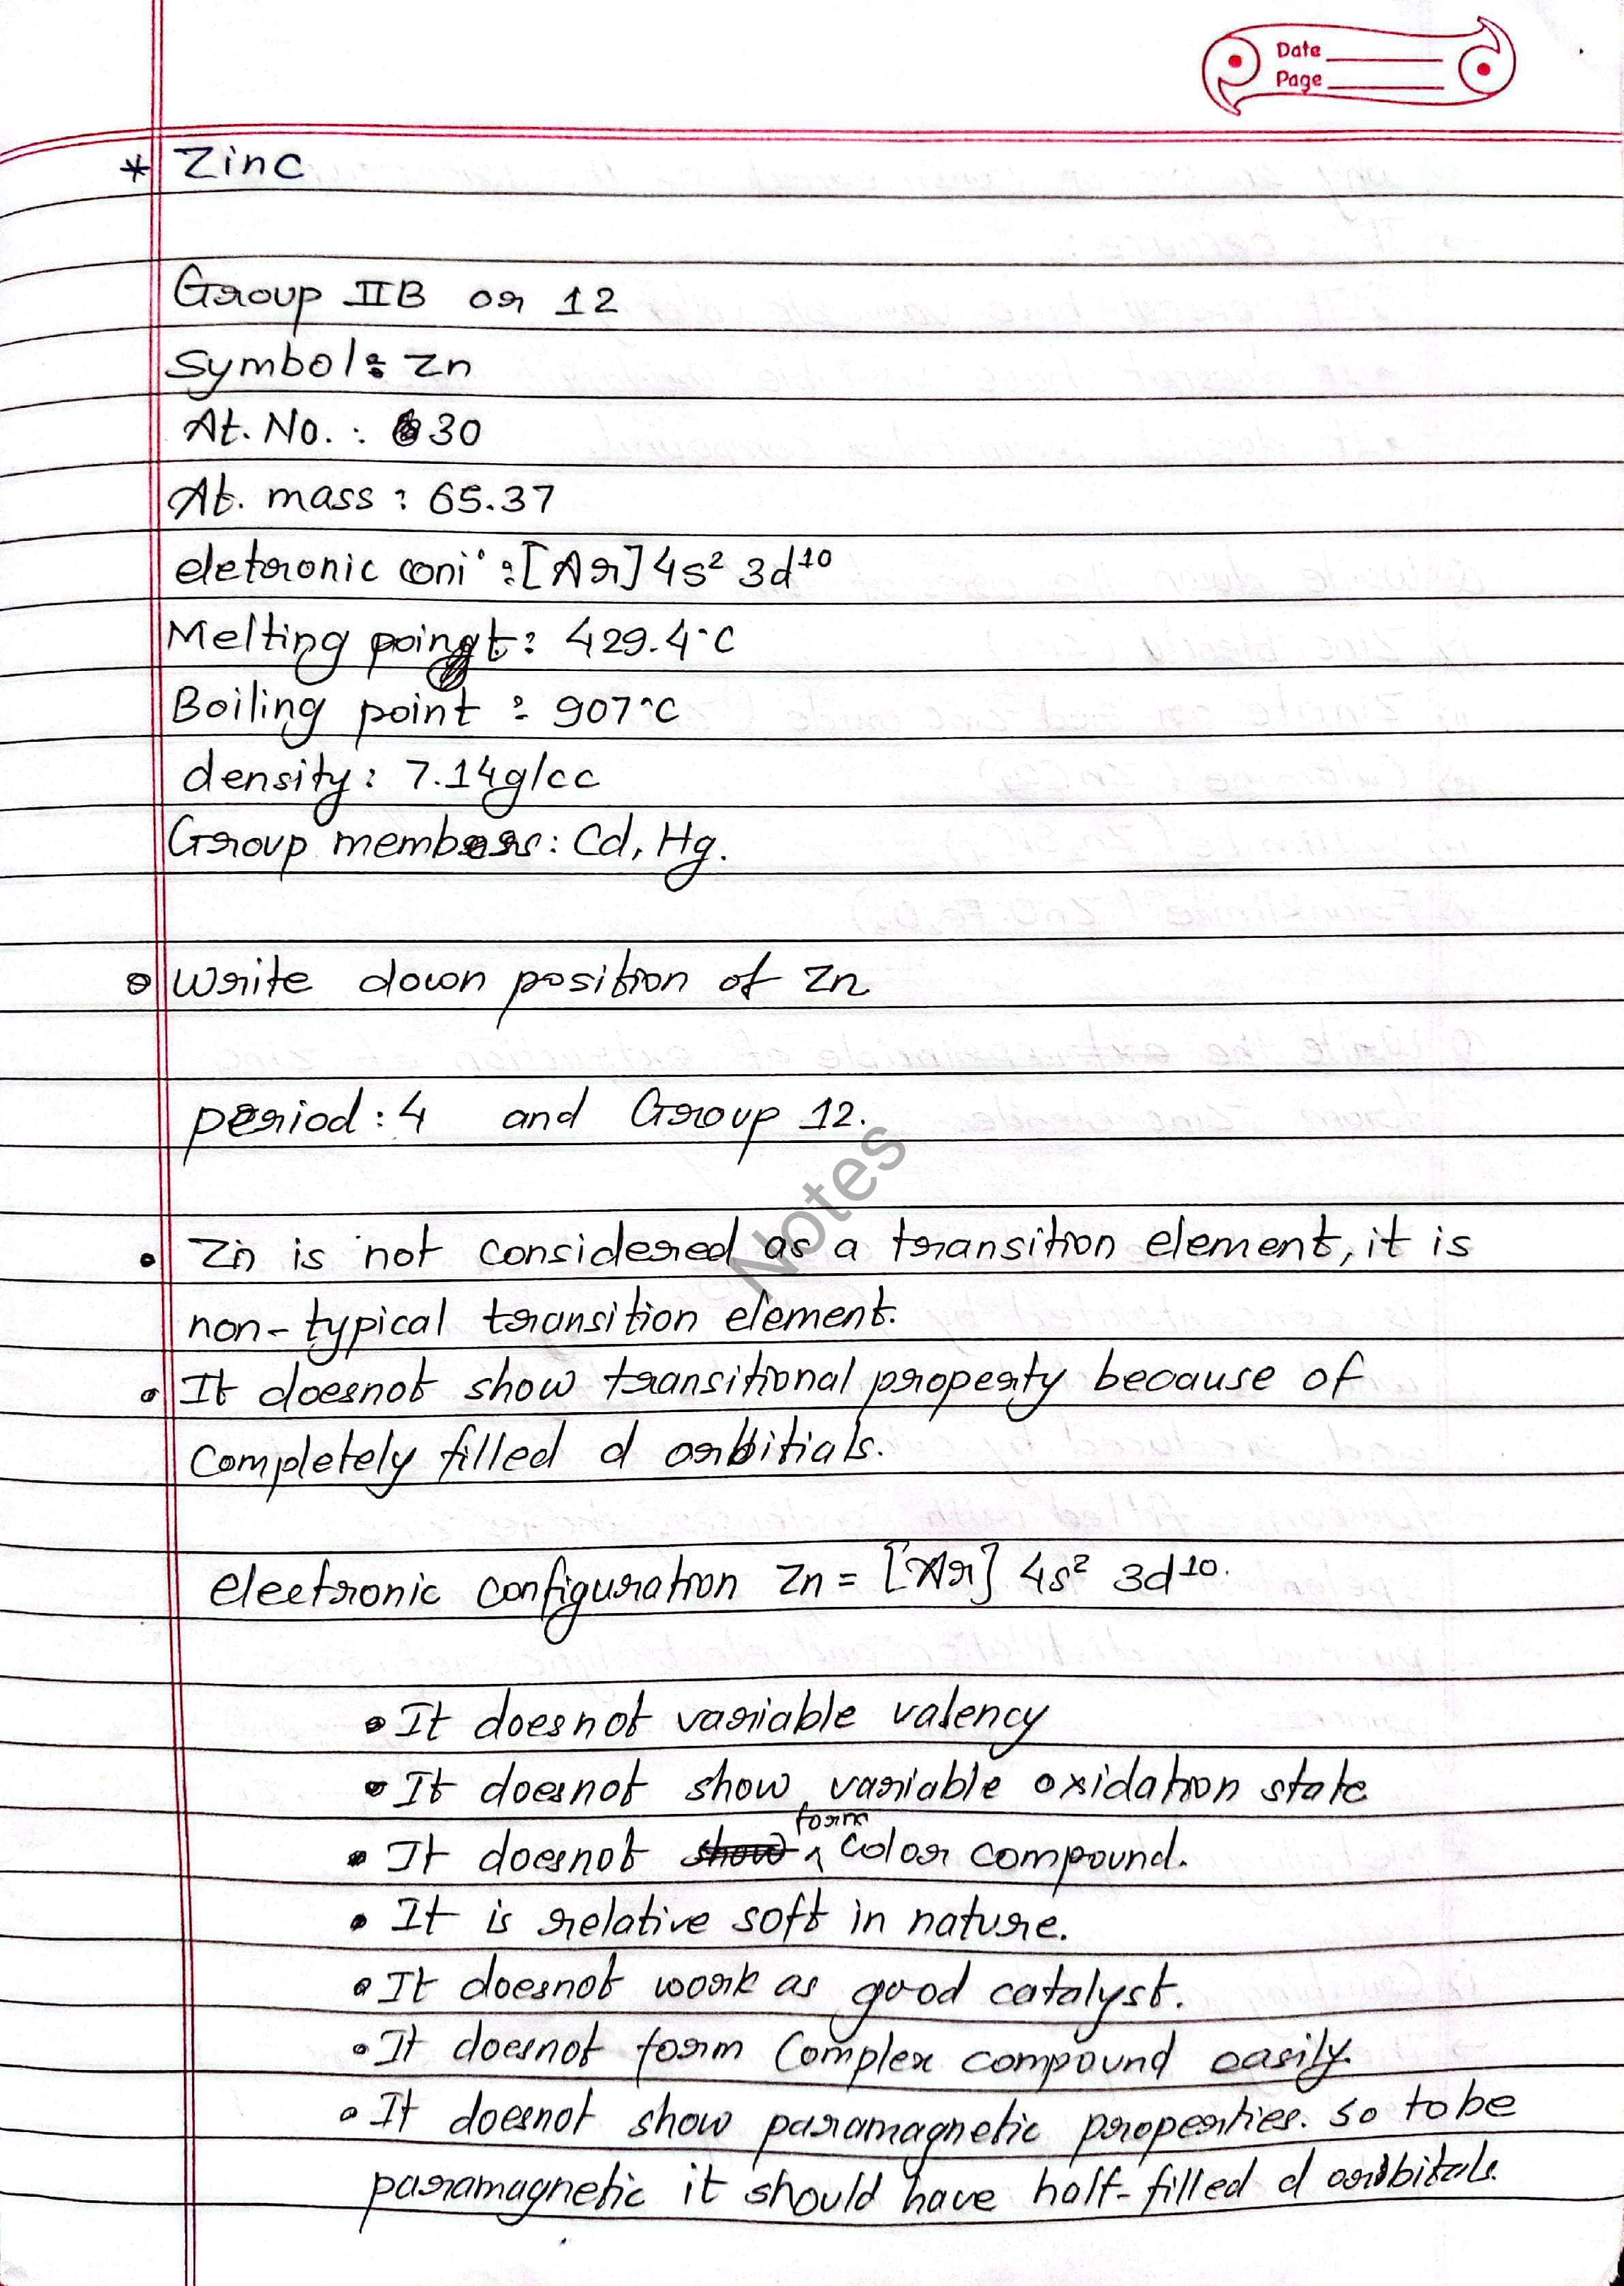 Date
Page
* Zinc
Group IIB or 12
Symbol: Zn
At. No. : 30
At. mass : 65.37
eletronic coni° : [Ar] 4s² 3d¹⁰
Melting point : 429.4°C
Boiling point : 907°C
density : 7.14g/cc
Group members : Cd, Hg.
Write down position of Zn
period : 4 and Group 12.
Notes
• Zn is not considered as a transition element, it is
non-typical transition element.
• It doesnot show transitional property because of
completely filled d orbitials.
electronic configuration Zn = [Ar] 4s² 3d¹⁰.
• It doesnot variable valency
• It doesnot show variable oxidation state
• It doesnot form color compound.
• It is relative soft in nature.
• It doesnot work as good catalyst.
• It doesnot form Complex compound easily.
• It doesnot show paramagnetic properties. So to be
paramagnetic it should have half-filled d orbitals.